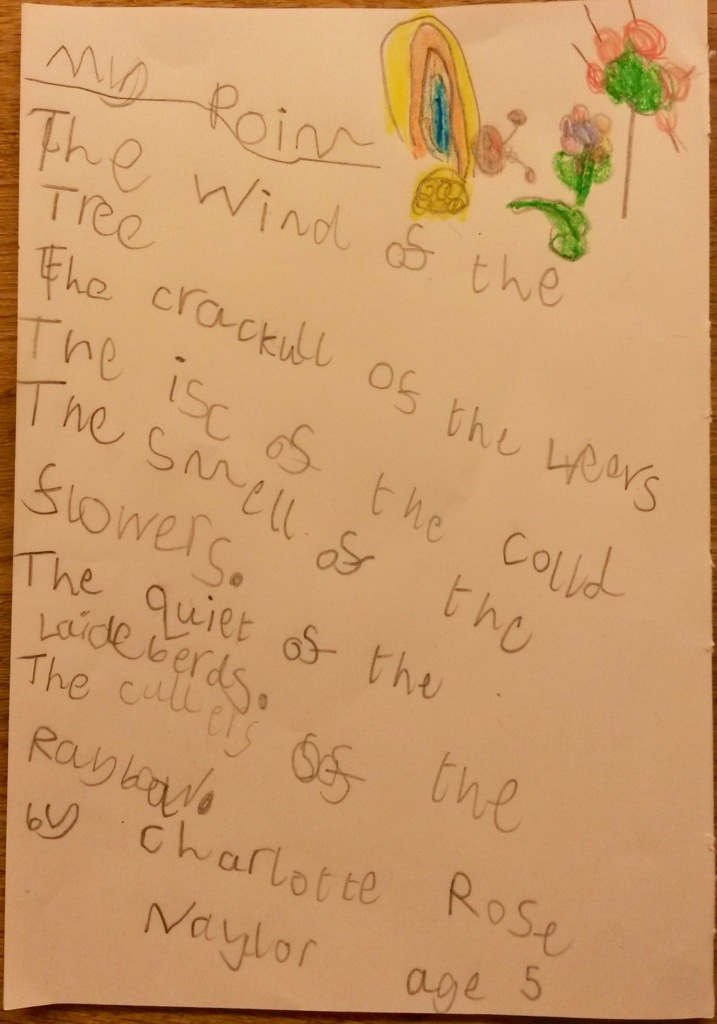 My Poim
The Wind of the
Tree
The crackull of the leevs
The isc of the colld
The smell of the
flowers.
The quiet of the
Laideberds.
The cullers of the
Raybow.
by Charlotte Rose
Naylor age 5